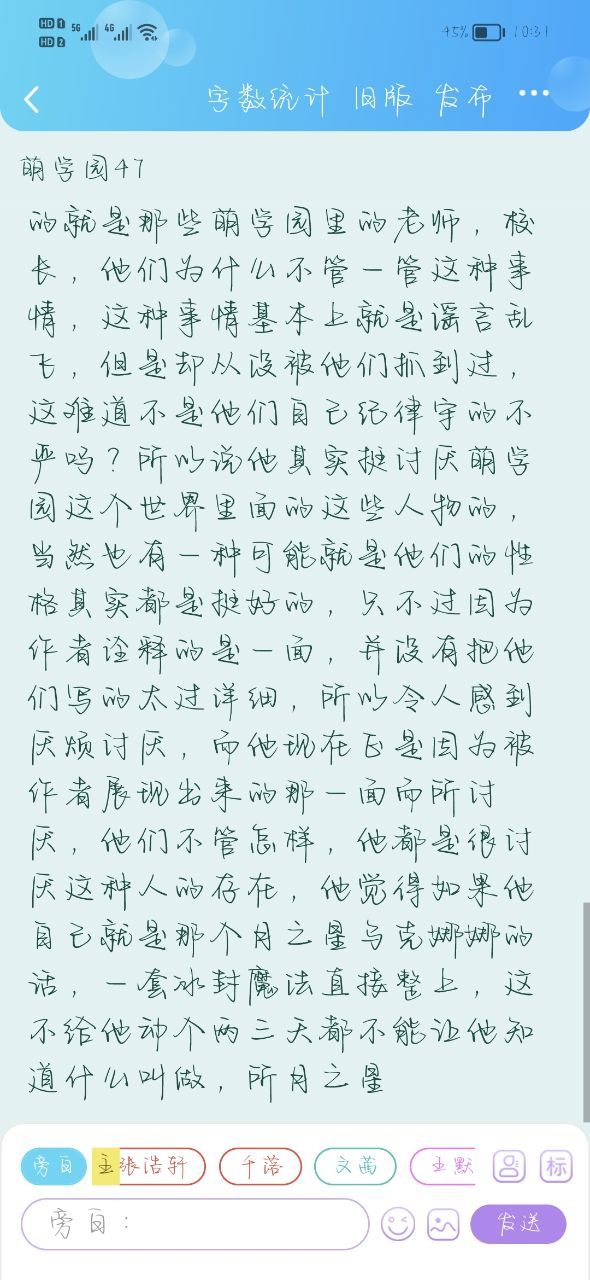 HD 1 5G 4G 45% 10:31
HD 2
字数统计 旧版 发布 •••
萌学园47
的就是那些萌学园里的老师，校
长，他们为什么不管一管这种事
情，这种事情基本上就是谣言乱
飞，但是却从没被他们抓到过，
这难道不是他们自己纪律守的不
严吗？所以说他其实挺讨厌萌学
园这个世界里面的这些人物的，
当然也有一种可能就是他们的性
格其实都是挺好的，只不过因为
作者诠释的是一面，并没有把他
们写的太过详细，所以令人感到
厌烦讨厌，而他现在正是因为被
作者展现出来的那一面而所讨
厌，他们不管怎样，他都是很讨
厌这种人的存在，他觉得如果他
自己就是那个月之星乌克娜娜的
话，一套冰封魔法直接整上，这
不给他冻个两三天都不能让他知
道什么叫做，所月之星
旁白 主张浩轩 千落 文茜 王默 标
旁白： 发送